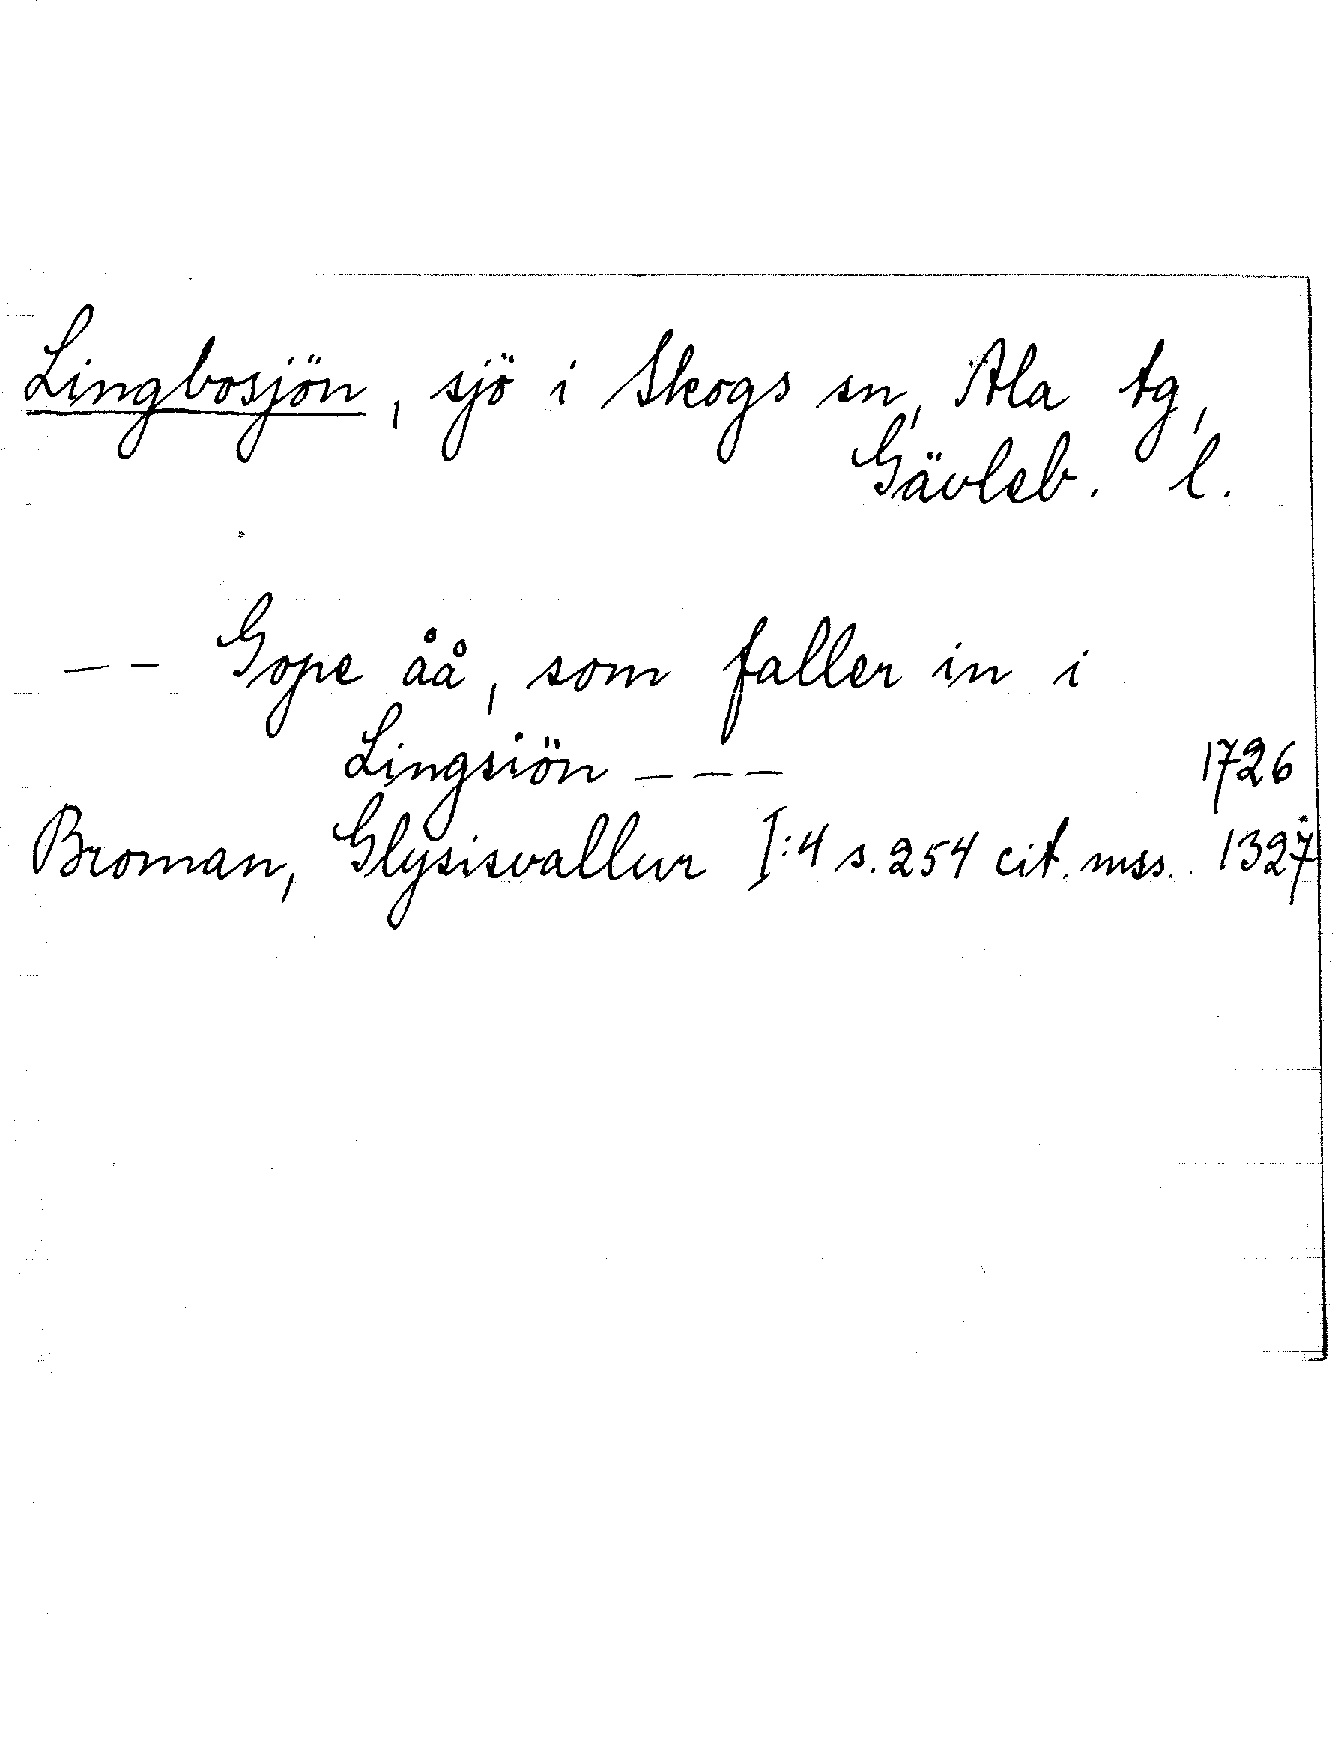 Lingbosjön, sjö i Skogs sn, Ala tg,
Gävleb. l.
-- Gope åå, som faller in i
Lingsiön --- 1726
Broman, Glysisvallur I:4 s. 254 cit. mss. 1327